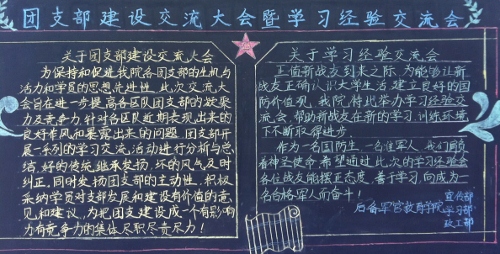 团支部建设交流大会暨学习经验交流会
关于团支部建设交流大会
为保持和促进我院各团支部的生机与
活力和学员的思想先进性,此次交流大
会旨在进一步提高各区队团支部的凝聚
力及竞争力,针对各区队近期表现出来的
良好作风和暴露出来的问题,团支部开
展一系列的学习交流活动进行分析与总
结,好的传统,继承发扬,坏的风气及时
纠正,同时发扬团支部的主动性,积极
采纳学员对支部发展和建设有价值的意
见和建议,为把团支建设成一个有影响力
有竞争力的集体尽职尽责尽力!
关于学习经验交流会
正值新战友到来之际,为能够让新
战友正确认识大学生活,建立良好的国
防价值观,我院特此举办学习经验交
流会,帮助新战友在新的学习训练环境
下不断取得进步。
作为一名国防生,一名准军人,我们肩负
着神圣使命,希望通过此次的学习经验会
各位战友能摆正态度,善于学习,向成为一
名合格军人而奋斗!
后备军官教育学院
宣传部
学习部
政工部